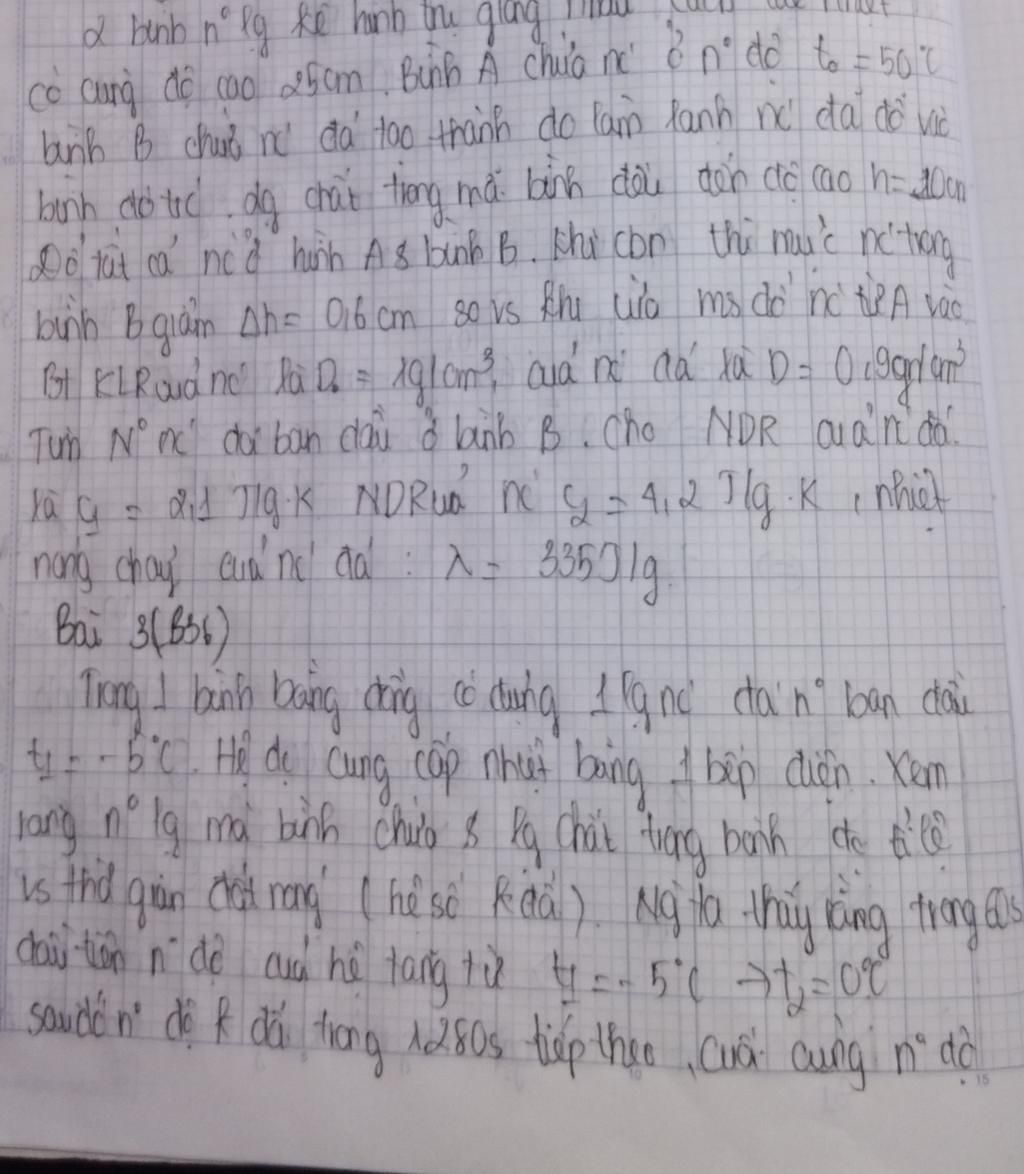 2 bình n° lg kế hình trụ giống nhau cách
có cùng độ cao 25cm. Bình A chứa nc ở n° độ t₀ = 50°C
bình B chứa nc đá tạo thành do làm lanh nc đã đổ vào
bình đó trc. dg chất trong mỗi bình đều đến độ cao h = 10cm
Đổ tất cả nc ở bình A & bình B. Khi cbn thì mực nc trong
bình B giảm Δh = 0,6 cm so vs khi vừa ms đổ nc từ A vào
Bt KLR quả nc là D₀ = 1g/cm³, quả nc đá là D = 0,9g/cm³
Tìm N° nc đá ban đầu ở bình B. Cho NDR quả nc đá
là c₁ = 2,1 J/g.K NDR uả nc c₂ = 4,2 J/g.K, nhiệt
nóng chảy quả nc đá : λ = 335J/g.
Bài 3(B36)
Trong 1 bình bằng đồng có đựng 1 lg nc đá n° ban đầu
t₁ = -5°C. Hệ dc cung cấp nhiệt bằng 1 bếp điện. Xem
rang n° lg mà bình chứa & lg chất trong bình dc tỉ lệ
vs thời gian đốt nóng (hệ số k đổi). Ng ta thấy rằng trong 60s
đầu tiên n° độ quả hệ tăng từ t₁ = -5°C → t₂ = 0°C
sau đó n° độ k đổi trong 1280s tiếp theo, cuối cùng n° độ
15